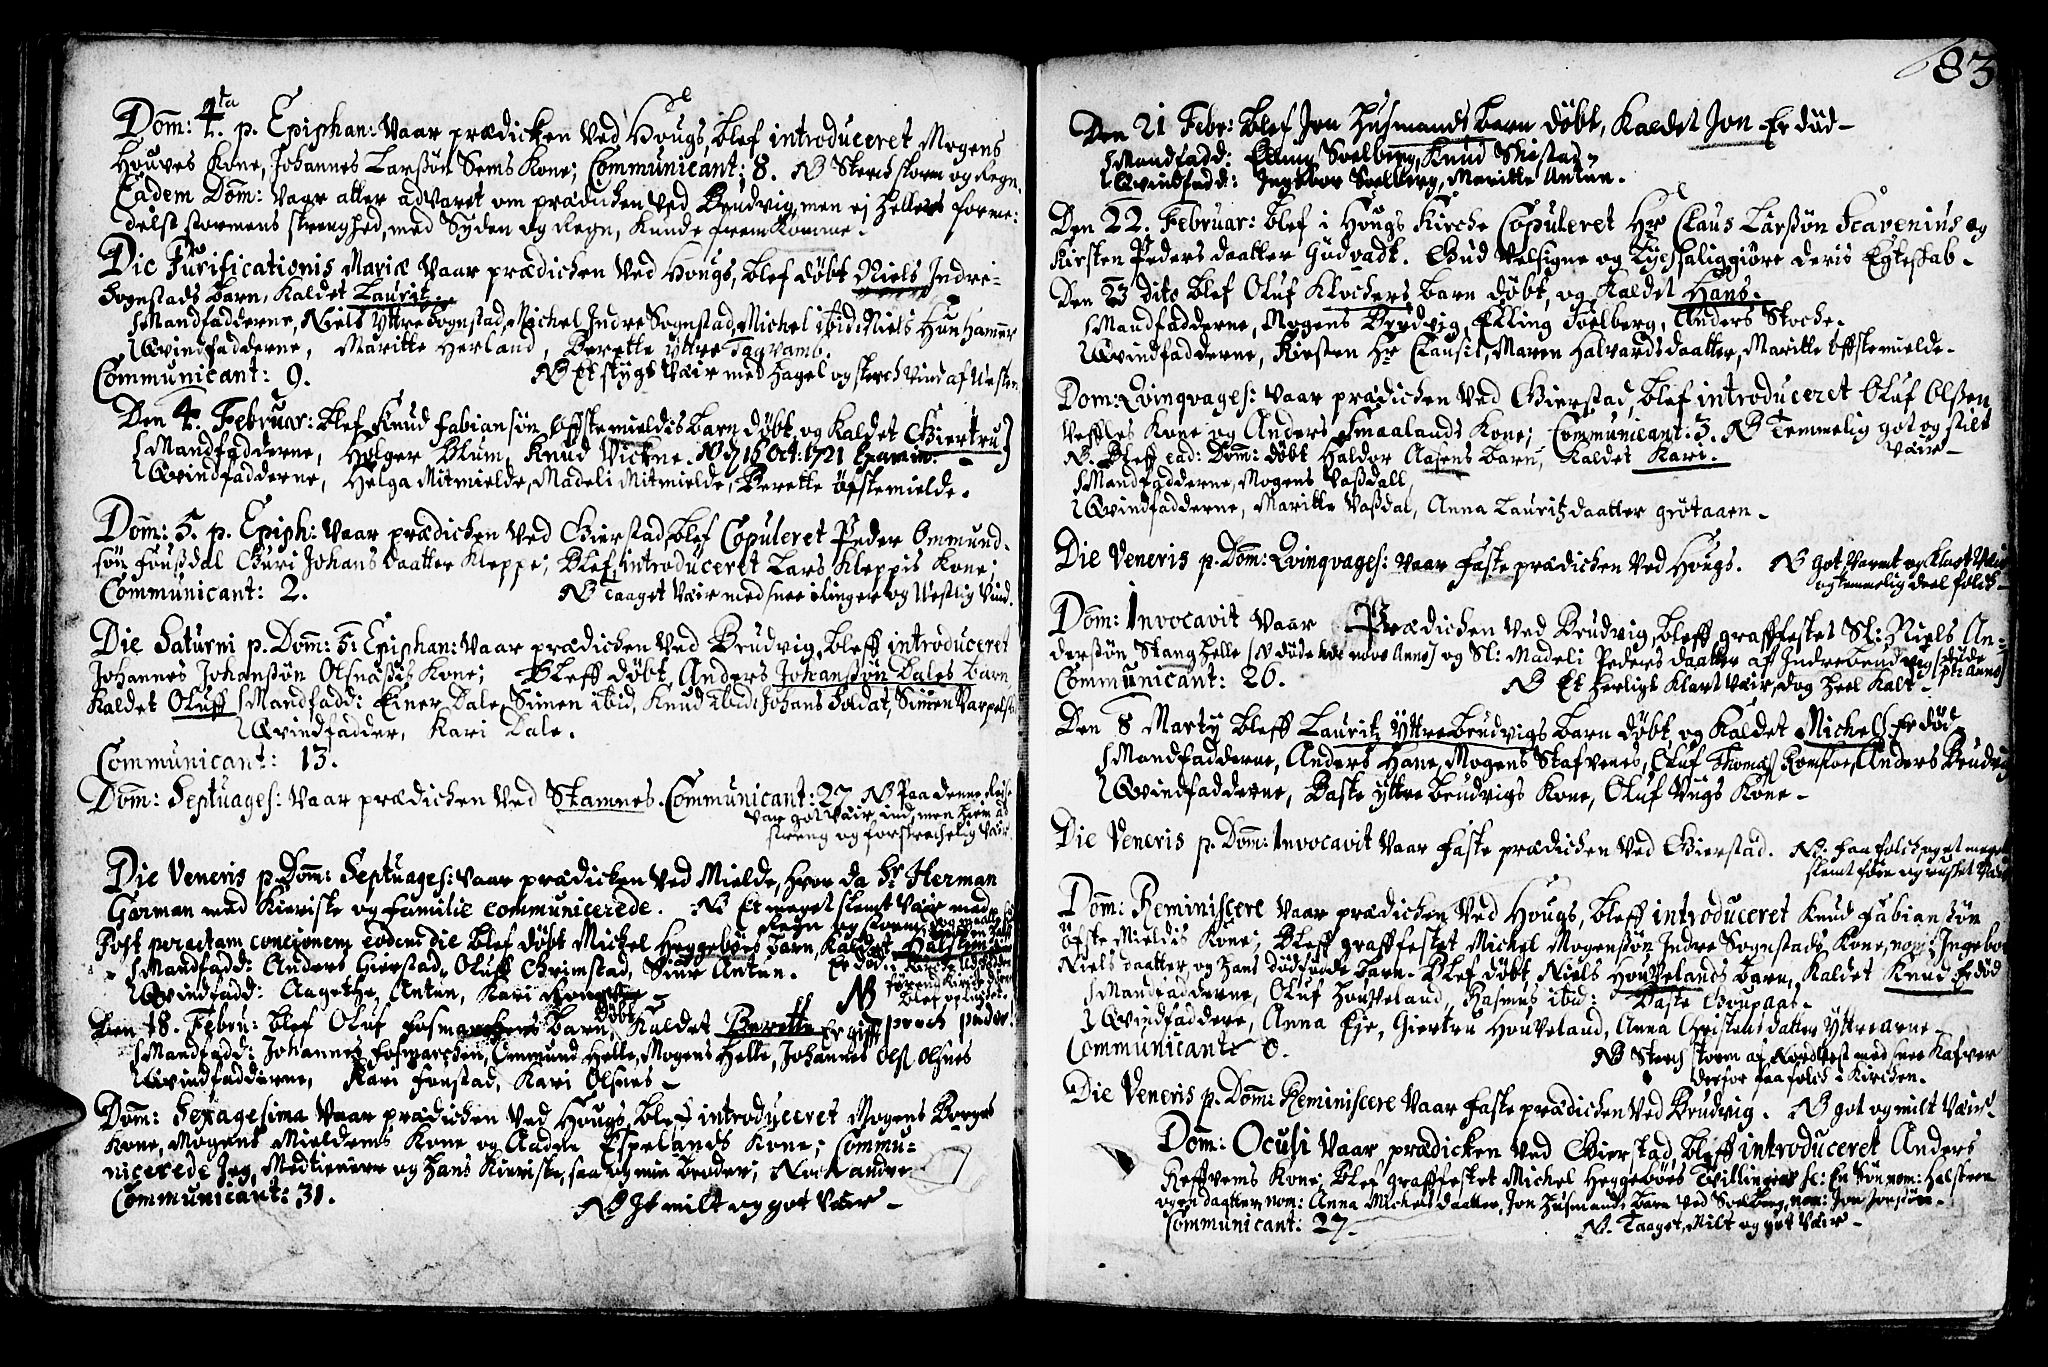 Dom: 4ta p. Epiphan: Vaar prædicken Ved Hougs, blef introduceret Mogens
Houves Kone, Johannes Larssøn Sems Kone; Communicant: 8. NB Sterch storm og Regn.
Eadem Dom: Vaar aller advaret om prædicken Ved Brudvig, men ej hellers forme-
delst stormens strenghed, med Synden og Regn, Kunde fremkomme.
Die Purificationis Mariæ Vaar prædicken Ved Hougs, blef døbt Niels Indre-
Sognstads barn, Kaldet Lauritz
Mandfadderne, Niels Yttre Sognstad, Michel Indre Sognstad, Michel ibid: Niels
Qvindfadderne, Maritte Herland, Berette Yttre
Communicant: 9. NB Et stygt Vær med Hagel og sterch Vind af Vesten
Den 4. Februar: blef Knud Fabiansøn Øffstemieldis barn døbt og Kaldet Giertru
Mandfadderne, Holger Blum, Knud Vickne. 16 Oct: 1721
Qvindfadderne, Helga Mitmielde, Madeli Mitmielde, Berette Øfstemielde.
Dom: 5. p. Epiph: Vaar prædicken Ved Gierstad, blef Copuleret Peder Ommund-
søn Fousdal Guri Johans daatter Kleppe; Blef introduceret Lars Kleppis Kone;
Communicant: 2. NB Taaget Vær med snee ilinger og Vestlig Vind.
Die Saturni p. Dom: 5. Epiphan: Vaar prædicken Ved Brudvig, bleff introduceret
Johannes Johanssøn Olsnæsis Kone; Bleff døbt, Anders Johanssøn Dales barn
Kaldet Oluff Mandfadd: Einer Dale, Simen ibid, Knud ibid: Johans Soldat, Simen
Qvindfadder, Kari Dale.
Communicant: 13.
Dom: Septuages: Vaar prædicken Ved Stamnes. Communicant: 27 NB Paa denne Reise
Var got Vær ind, men hiem ad
streng og forskrechelig Vær
Die Veneris p. Dom: Septuages: Vaar prædicken Ved Mielde, hvor da Hr Herman
Garman med Kieriste og familie communicerede. NB Et meget slemt Vær med
Regn og storm
Post peractam concionem eodem die blef døbt Michel Heggebøes barn, Kaldet Halsten
Mandfadd: Anders Gierstad, Oluff Grimstad, Siur Antun. Er død
Qvindfadd: Aagethe Antun, Kari
Den 18. Febru: blef Oluf barn døbt Kaldet Berette Er gift proch pudor!
Mandfadd: Johannes Fosmarchen, Ommund Helle, Mogens Helle, Johannes Ols Olsnes
Qvindfadderne, Kari Fonstad, Kari Olsnes
Dom: Sexagesima Vaar prædicken Ved Hougs, blef introduceret Mogens Borges
Kone, Mogens Mieldems Kone og Aadne Espelands Kone; Commu-
nicerede Jeg, Medtienere og hans Kieriste, saa og min broder, Noch andre
Communicant: 31. NB It milt og got Vær
83
Den 21 Febr: blef Jon Husmands barn døbt, Kaldet Jon Er død
Mandfadd: Elling Soelberg, Knud Skistad
Qvindfadd: Ingebor Soelberg, Maritte Antun.
Den 22. Februar: blef i Hougs Kirche Copuleret Hr Claus Larssøn Scavenius og
Kirsten Peders daatter Gudvadt. Gud Velsigne og Lychsaliggiøre deris Egteskab
Den 23 dito blef Oluf Klochers barn døbt, og Kaldet Hans.
Mandfadderne, Mogens Brudvig, Elling Soelberg, Anders Stoche.
Qvindfadderne, Kirsten Hr Clausis, Maren Halvardsdaatter, Maritte Øffstemielde
Dom: Qvinqvages: Vaar prædicken Ved Gierstad, blef introduceret Oluf Olsen
Vefles Kone og Anders Smaalands Kone; Communicant: 3. NB Temmelig got og stilt
Vær
N. Blef ead: Dom: døbt Haldor Aasens barn, Kaldet Kari.
Mandfadderne, Mogens Vassdall,
Qvindfadderne, Maritte Vassdal, Anna Lauritzdaatter Grøtaaen
Die Veneris p. Dom: Qvinqvages: Vaar Faste prædicken Ved Hougs. NB got, Varmt og Klart Vær
og temmelig deel folch
Dom: Invocavit Vaar Prædicken Ved Brudvig, bleff graffestet Sl: Niels An-
derssøn Stanghelle (N døde novo Anno) og Sl: Madeli Peders daatter af Indrebrudvig (døde
pti anno)
Communicant: 26. NB Et herligt Klart Vær, dog heel Kalt
Den 8 Martij bleff Lauritz Yttrebrudvigs barn døbt og Kaldet Michel Er død
Mandfadderne, Anders Hane, Mogens Stafvenes, Oluf Thomas Romsloe, Anders Brudvig
Qvindfadderne, Baste Yttre brudvigs Kone, Oluf Vugs Kone
Die Veneris p. Dom: Invocavit Vaar faste prædicken Ved Gierstad. NB. Faa folch, og et meget
slemt føre og rusket Vær
Dom: Reminiscere Vaar prædicken Ved Hougs, bleff introduceret Knud Fabianssøn
Øfste Mieldis Kone; Bleff graffestet Michel Mogenssøn Indre Sognstads Kone, nom: Ingebor
Niels daatter og hans dødfødde barn. Blef døbt, Niels Houvelands barn, Kaldet Knud Er død
Mandfadderne, Oluf Houveland, Rasmus ibid: Baste
Qvindfaddere, Anna Eje, Giertru Houveland, Anna Christens datter Yttrearne
Communicant: 0. NB Sterch storm af Nordvest med snee Kafver
derfor faa folch i Kirchen.
Die Veneris p. Dom: Reminiscere Vaar faste prædicken Ved Brudvig. NB got og milt Vær
Dom: Oculi Vaar prædicken Ved Gierstad, bleff introduceret Anders
Reffvems Kone; Blef graffestet Michel Heggebøes Tvillinger sc: En Søn nom: Halsten
og en daatter nom: Anna Michels daatter, Jon Husmands barn Ved Soelberg, nom: Jon Jonssøn
Communicant: 27. N. Taaget, Milt og got Vær